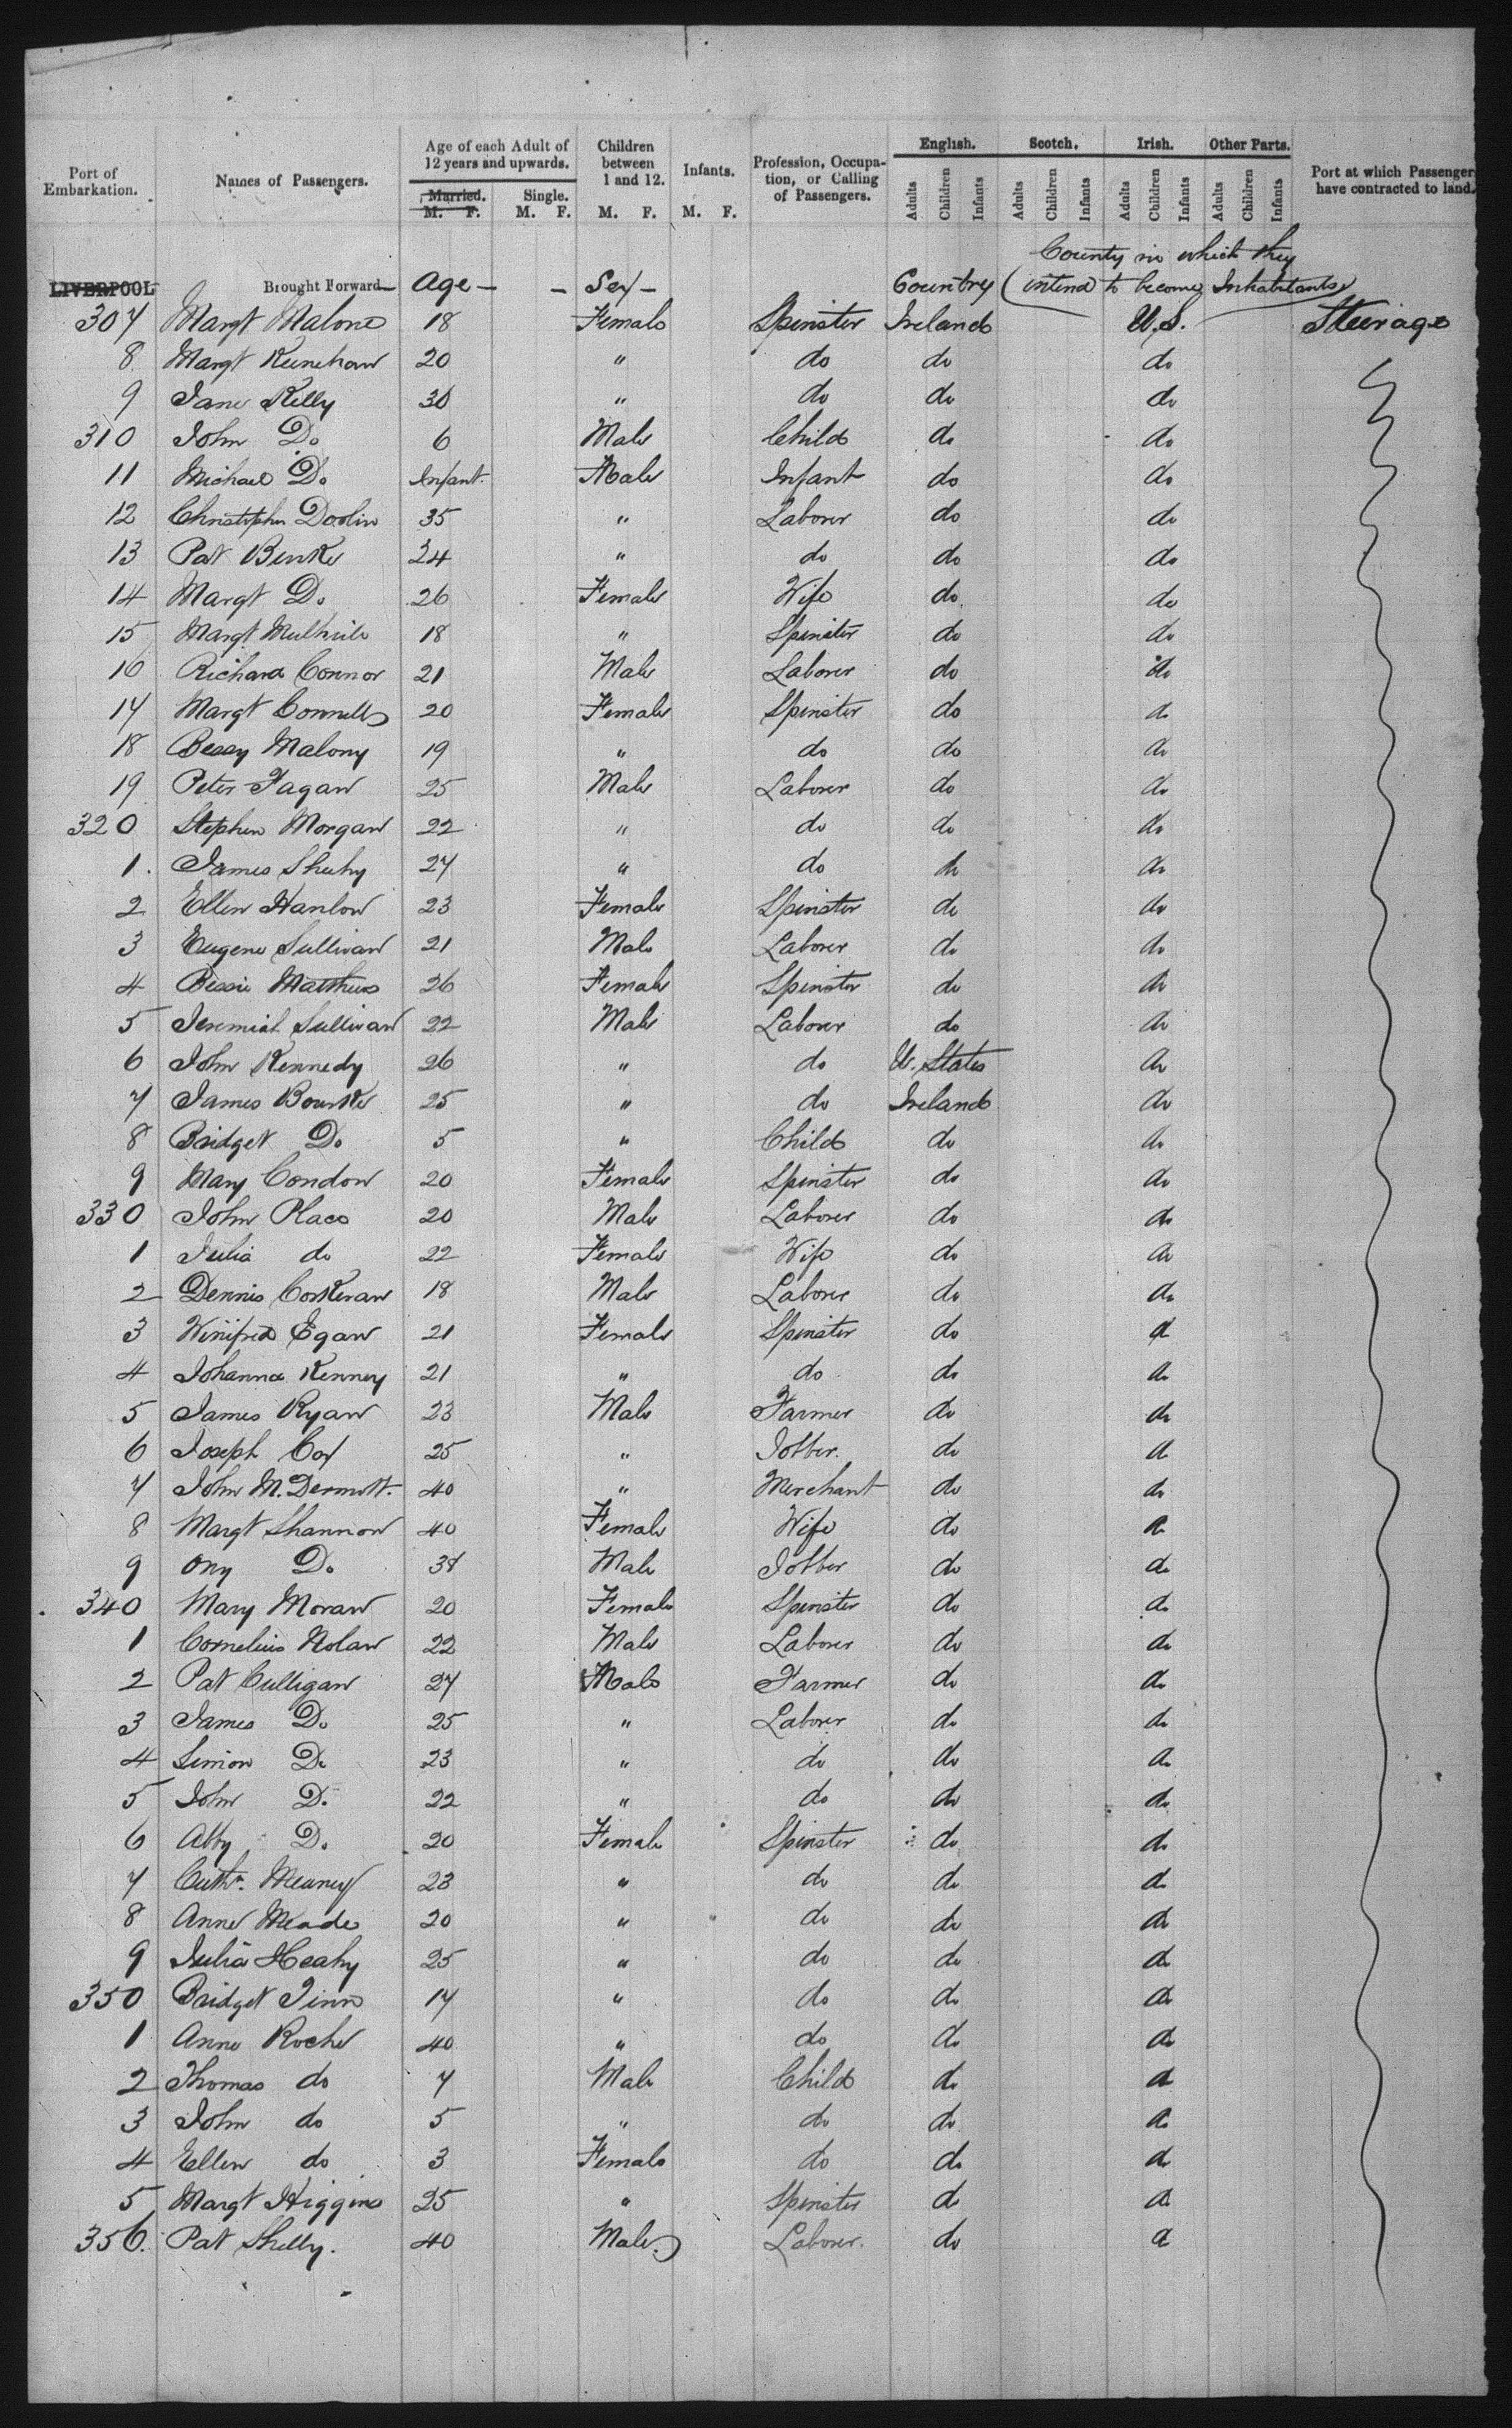 Port of Embarkation. Names of Passengers. Age of each Adult of 12 years and upwards. Children between 1 and 12. Infants. Profession, Occupation, or Calling of Passengers. English. Scotch. Irish. Other Parts. Port at which Passengers have contracted to land.
Married. Single.
M. F. M. F. M. F. M. F. Adults Children Infants Adults Children Infants Adults Children Infants Adults Children Infants
LIVERPOOL Brought Forward Age Sex Country (County in which they intend to become Inhabitants)
307 Margt Malone 18 Female Spinster Ireland U.S. Steerage
8 Margt 20 " do do do
9 Jane Kelly 30 " do do do
310 John Do 6 Male Child do do
11 Michael Do Infant Male Infant do do
12 Christopher Doolin 35 " Laborer do do
13 Pat Burke 24 " do do do
14 Margt Do 26 Female Wife do do
15 Margt 18 " Spinster do do
16 Richard Connor 21 Male Laborer do do
17 Margt Connell 20 Female Spinster do do
18 Bessy Malony 19 " do do do
19 Peter Fagan 25 Male Laborer do do
320 Stephen Morgan 22 " do do do
1. James Sheehy 27 " do do do
2 Ellen Hanlon 23 Female Spinster do do
3 Eugene Sullivan 21 Male Laborer do do
4 Bessie Matthews 26 Female Spinster do do
5 Jeremiah Sullivan 22 Male Laborer do do
6 John Kennedy 26 " do U. States do
7 James Bourke 25 " do Ireland do
8 Bridget Do 5 " Child do do
9 Mary Condon 20 Female Spinster do do
330 John Place 20 Male Laborer do do
1 Julia do 22 Female Wife do do
2 Dennis Corkeran 18 Male Laborer do do
3 Winifred Egan 21 Female Spinster do do
4 Johanna Kenney 21 " do do do
5 James Ryan 23 Male Farmer do do
6 Joseph Cox 25 " Jobber. do do
7 John M. Dermott. 40 " Merchant do do
8 Margt Shannon 40 Female Wife do do
9 Ony Do 38 Male Jobber do do
340 Mary Moran 20 Female Spinster do do
1 Cornelius Nolan 22 Male Laborer do do
2 Pat Culligan 27 Male Farmer do do
3 James Do 25 " Laborer do do
4 Simon Do 23 " do do do
5 John Do 22 " do do do
6 Abby Do 20 Female Spinster do do
7 Cathn. Meaney 23 " do do do
8 Anne Meade 20 " do do do
9 Julia Heahy 25 " do do do
350 Bridget Finn 17 " do do do
1 Anne Roche 40 " do do do
2 Thomas do 7 Male Child do do
3 John do 5 " do do do
4 Ellen do 3 Female do do do
5 Margt Higgins 25 " Spinster do do
356. Pat Shelly. 40 Male Laborer. do do